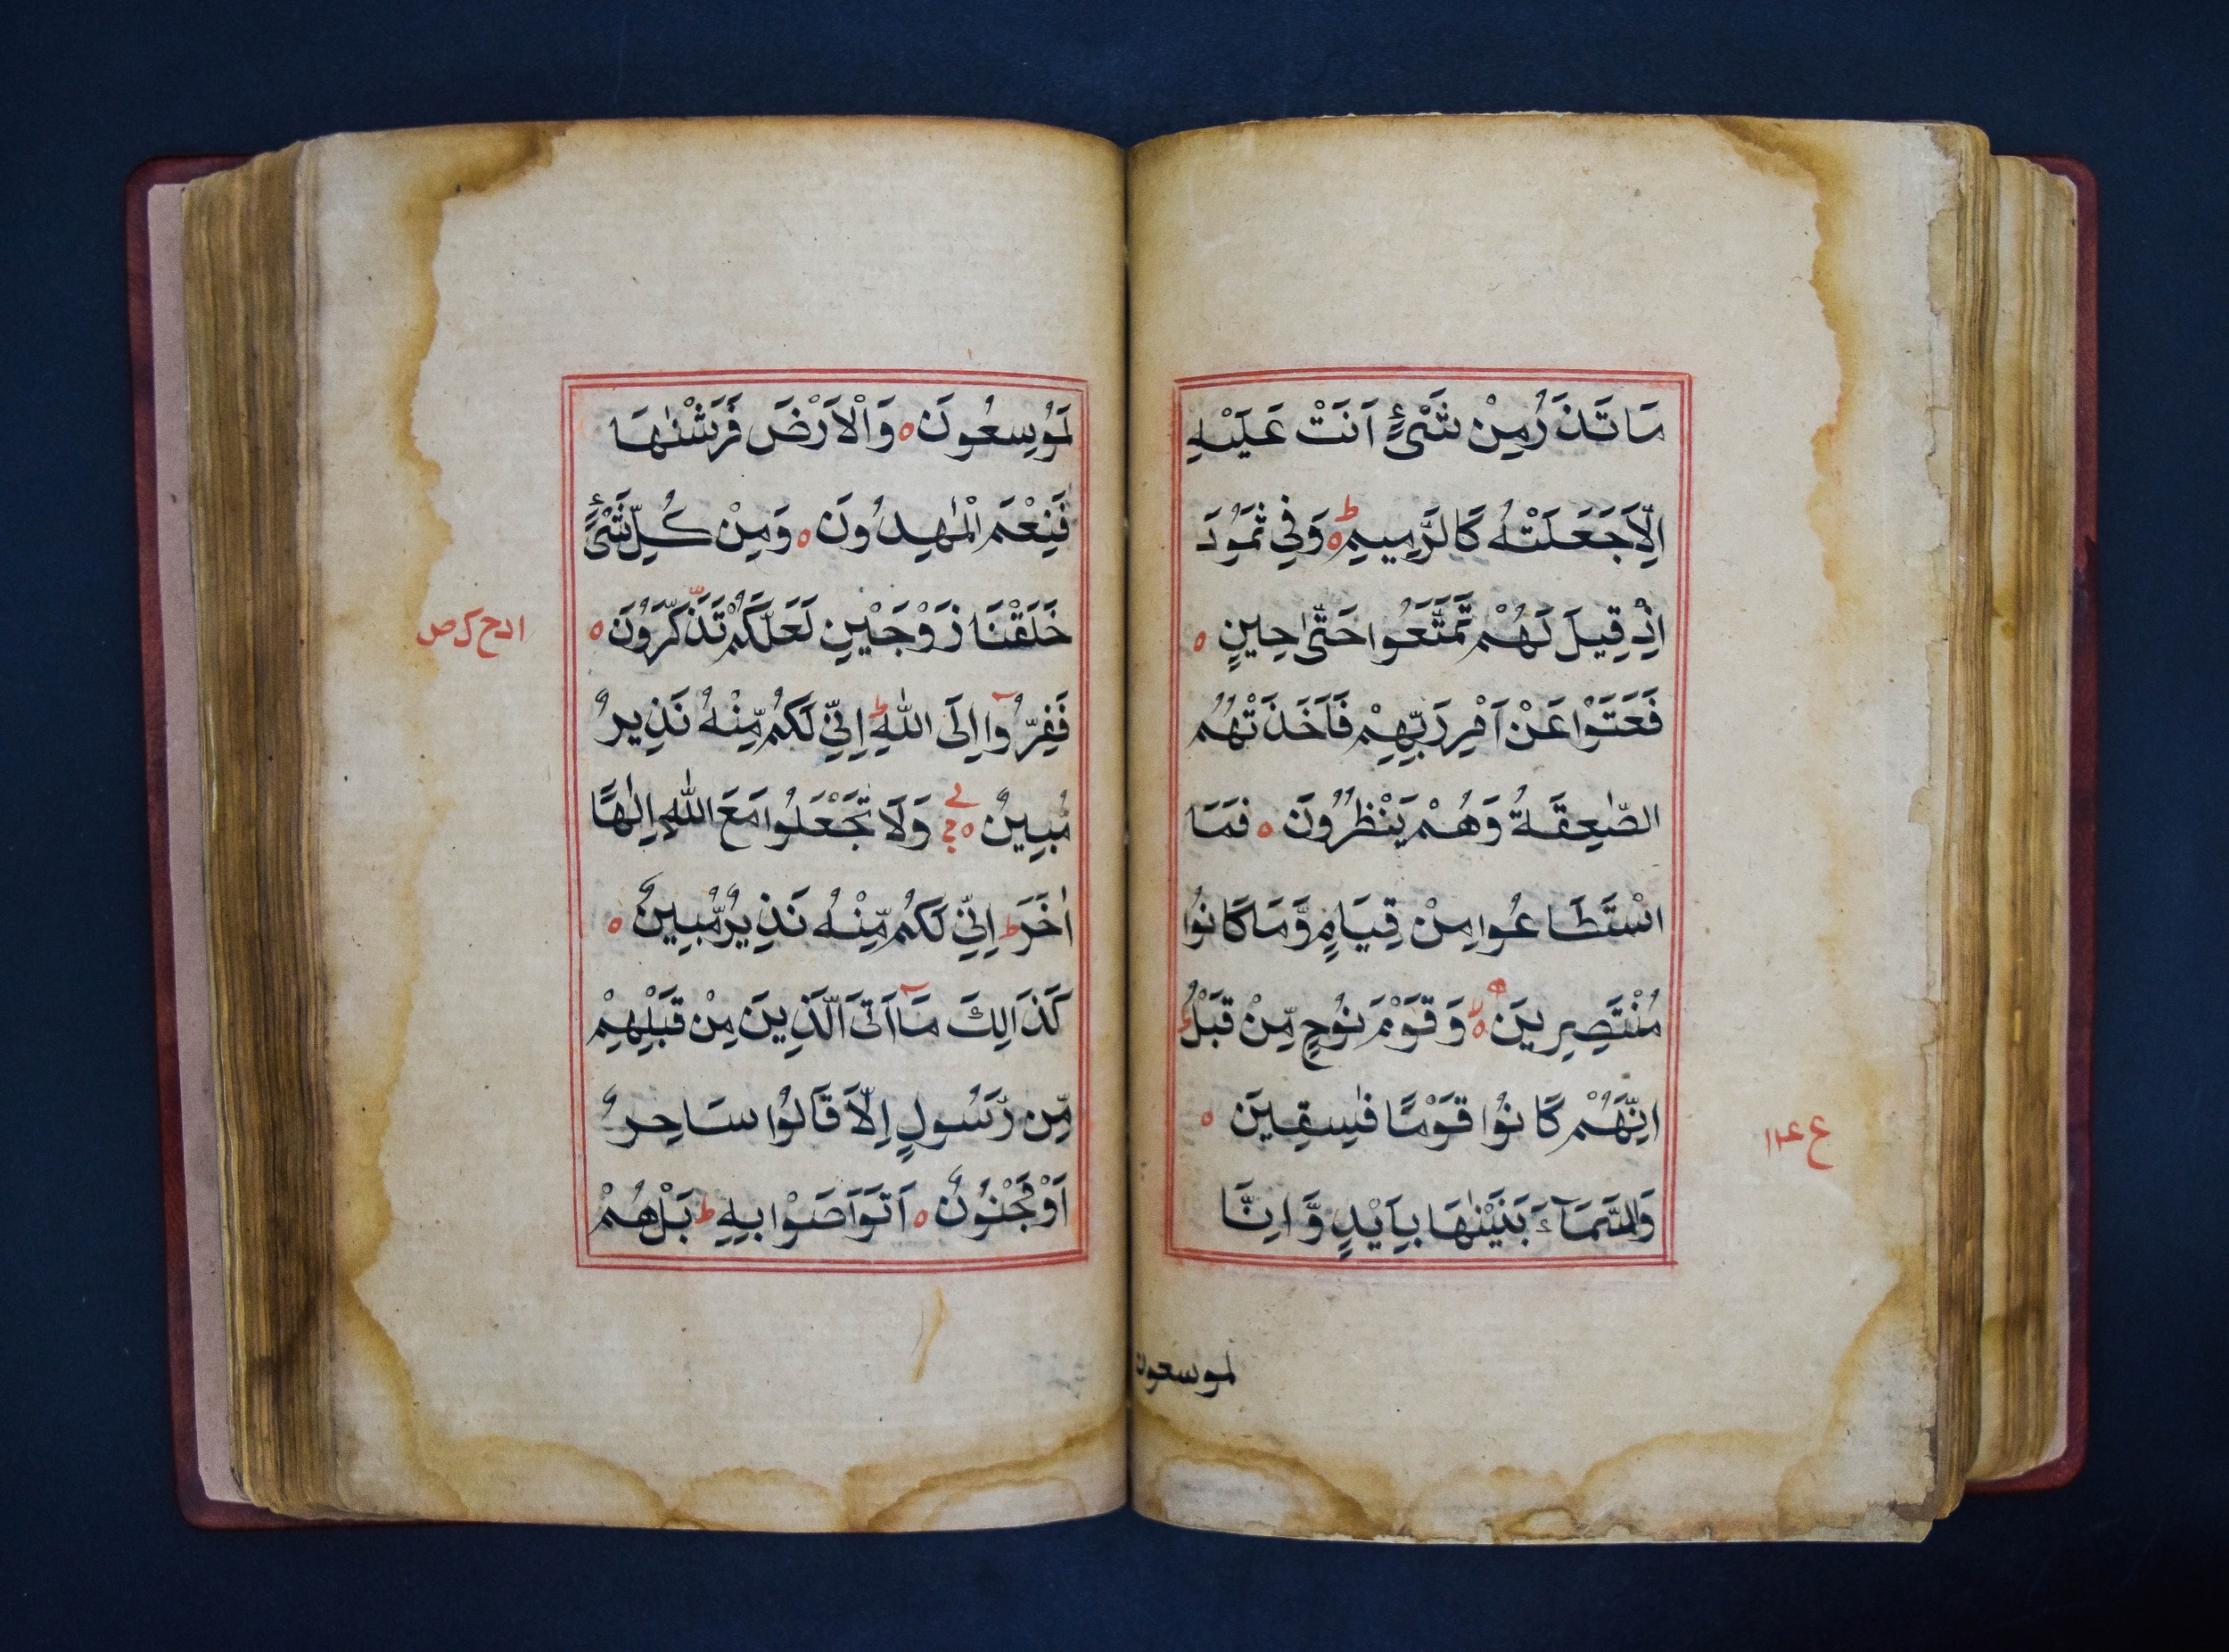 مَا تَذَرُ مِنْ شَىْءٍ اَتَتْ عَلَيْهِ
اِلَّا جَعَلَتْهُ كَالرَّمِيمِ ه ط وَفِي ثَمُودَ
اِذْ قِيلَ لَهُمْ تَمَتَّعُوا حَتّٰى حِينٍ ه
فَعَتَوْا عَنْ اَمْرِ رَبِّهِمْ فَاَخَذَتْهُمُ
الصّٰعِقَةُ وَهُمْ يَنْظُرُونَ ه فَمَا
اسْتَطَاعُوا مِنْ قِيَامٍ وَّمَا كَانُوا
مُنْتَصِرِينَ ه لا وَقَوْمَ نُوحٍ مِّنْ قَبْلُ ط
اِنَّهُمْ كَانُوا قَوْمًا فٰسِقِينَ ه
ع
وَالسَّمَآءَ بَنَيْنٰهَا بِاَيْدٍ وَّاِنَّا
لموسعون
لَمُوسِعُونَ ه وَالْاَرْضَ فَرَشْنٰهَا
فَنِعْمَ الْمٰهِدُونَ ه وَمِنْ كُلِّ شَىْءٍ
خَلَقْنَا زَوْجَيْنِ لَعَلَّكُمْ تَذَكَّرُونَ ه
فَفِرُّوٓا اِلَى اللّٰهِ ط اِنِّي لَكُمْ مِّنْهُ نَذِيرٌ
مُبِينٌ ه ج وَلَا تَجْعَلُوا مَعَ اللّٰهِ اِلٰهًا
اٰخَرَ ط اِنِّي لَكُمْ مِّنْهُ نَذِيرٌ مُّبِينٌ ه
كَذَالِكَ مَآ اَتَى الَّذِينَ مِنْ قَبْلِهِمْ
مِّن رَّسُولٍ اِلَّا قَالُوا سَاحِرٌ
اَوْ مَجْنُونٌ ه اَتَوَاصَوْا بِهِ ط بَلْ هُمْ